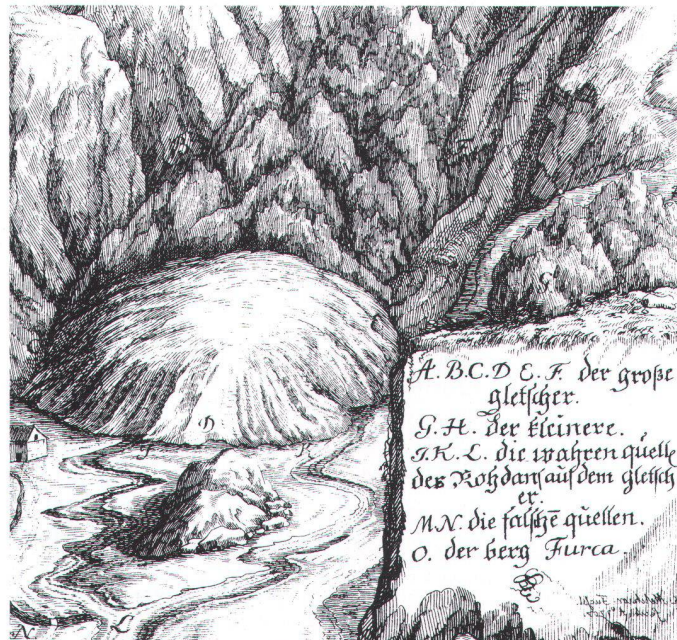 A. B. C. D E. F. der große
gletscher.
G. H. der kleinere.
I. K. L. die wahren quelle
des Rohdans auß dem gletsch
er.
M N. die falschē quellen.
O. der berg Furca.
C
D
H
I
K
L
N